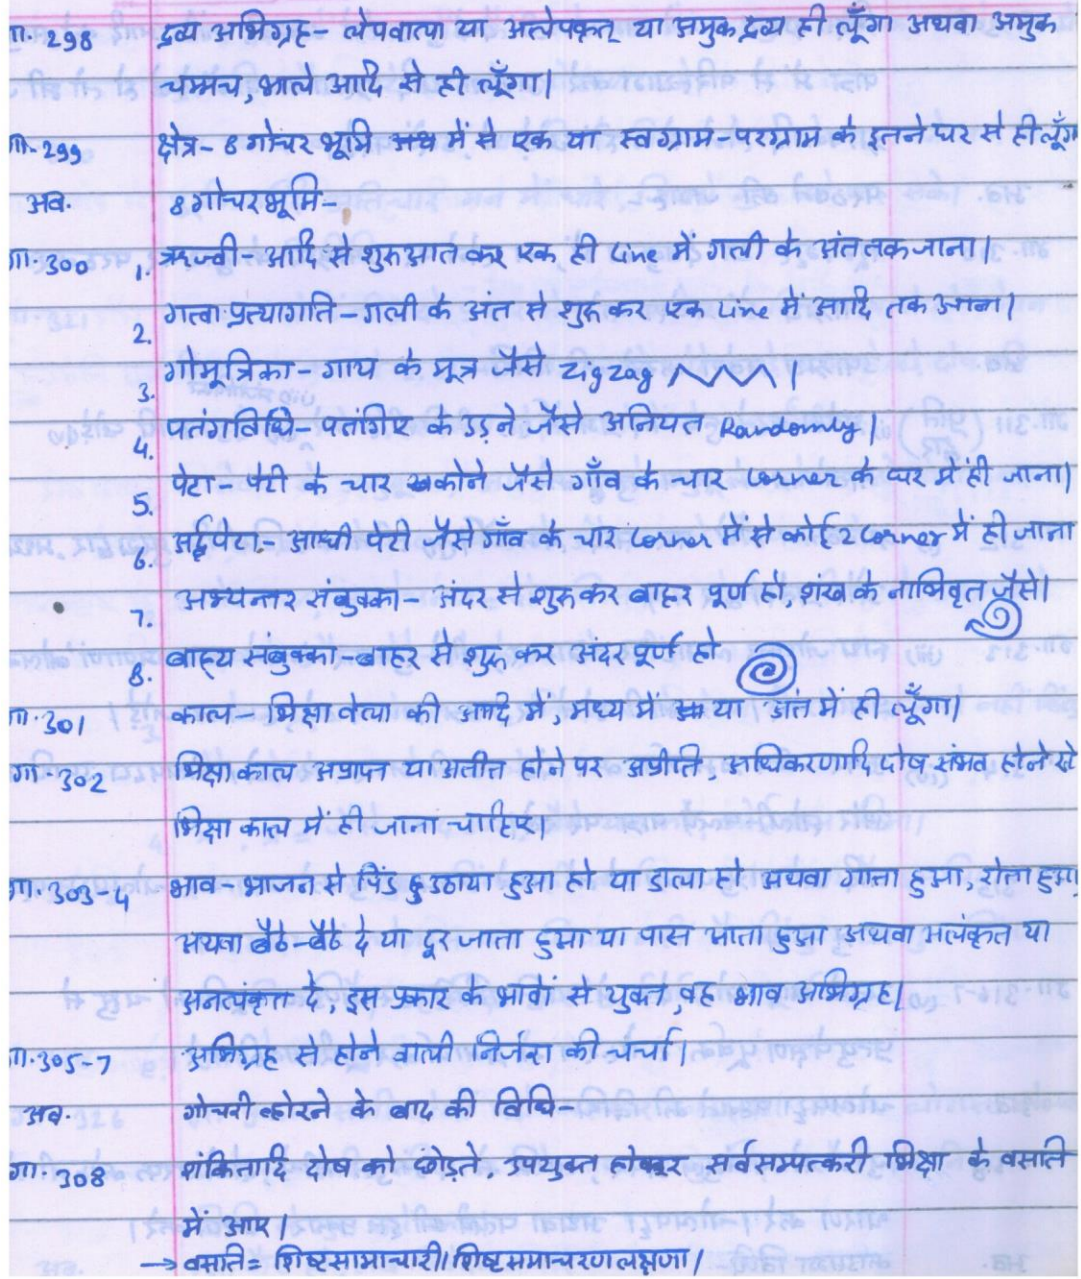 गा.298 द्रव्य अभिग्रह- लेपवाला या अलेपकृत् या अमुक द्रव्य ही लूँगा अथवा अमुक
चम्मच, भाले आदि से ही लूँगा।
गा.299 क्षेत्र- 8 गोचर भूमि में से एक या स्वग्राम-परग्राम के इतने घर से ही लूँगा
अव. 8 गोचरभूमि-
गा.300 1. ऋज्वी- आदि से शुरुआत कर एक ही Line में गली के अंत तक जाना।
2. गत्वा प्रत्यागति- गली के अंत से शुरु कर एक Line में आदि तक आना।
3. गोमूत्रिका- गाय के मूत्र जैसे zigzag।
4. पतंगविधि- पतंगिए के उड़ने जैसे अनियत Randomly।
5. पेटा- पेटी के चार कोने जैसे गाँव के चार Corner के घर में ही जाना।
6. अर्द्धपेटा- आधी पेटी जैसे गाँव के चार Corner में से कोई 2 Corner में ही जाना
7. अभ्यन्तर संबुक्का- अंदर से शुरु कर बाहर पूर्ण हो, शंख के नाभिवृत जैसे।
8. बाह्य संबुक्का- बाहर से शुरु कर अंदर पूर्ण हो
गा.301 काल- भिक्षा वेला की आदि में, मध्य में या अंत में ही लूँगा।
गा.302 भिक्षा काल अप्राप्त या अतीत होने पर अप्रीति, अधिकरणादि दोष संभव होने से
भिक्षा काल में ही जाना चाहिए।
गा.303-4 भाव- भाजन से पिंड उठाया हुआ हो या डाला हो अथवा गाता हुआ, रोता हुआ
अथवा बैठे-बैठे दे या दूर जाता हुआ या पास आता हुआ अथवा अलंकृत या
अनलंकृत दे, इस प्रकार के भावों से युक्त, वह भाव अभिग्रह।
गा.305-7 अभिग्रह से होने वाली निर्जरा की चर्चा।
अव. गोचरी व्होरने के बाद की विधि-
गा.308 शंकितादि दोष को छोड़ते, उपयुक्त होकर सर्वसम्पत्करी भिक्षा के वसति
में आए।
→ वसति = शिष्टसामाचारी। शिष्टसमाचरणलक्षणा।